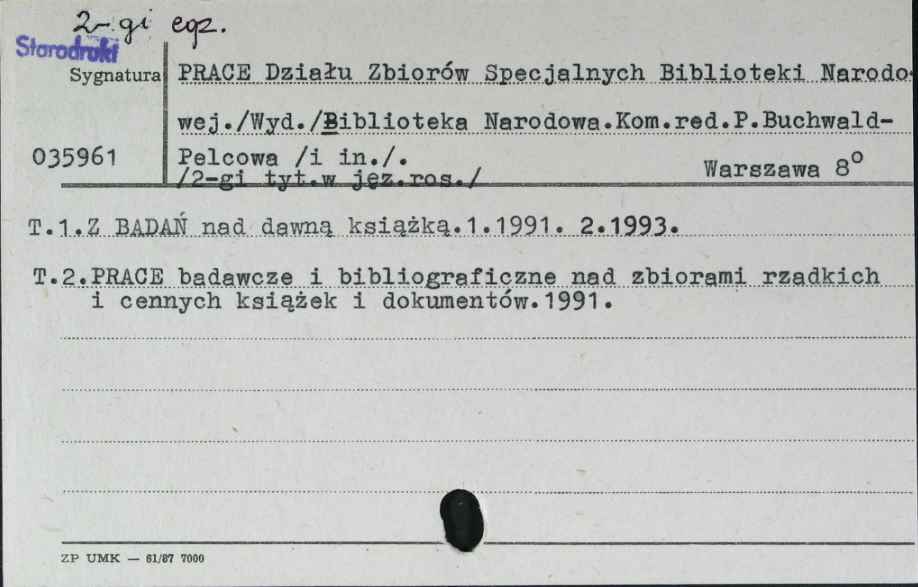 2-gi egz.
Starodruki
Sygnatura
PRACE Działu Zbiorów Specjalnych Biblioteki Narodo-
wej./Wyd./Biblioteka Narodowa.Kom.red.P.Buchwald-
035961
Pelcowa /i in./.
Warszawa 8°
/2-gi tyt.w jęz.ros./
T.1.Z BADAŃ nad dawną książką.1.1991. 2.1993.
T.2.PRACE badawcze i bibliograficzne nad zbiorami rzadkich
i cennych książek i dokumentów.1991.
ZP UMK — 61/87 7000